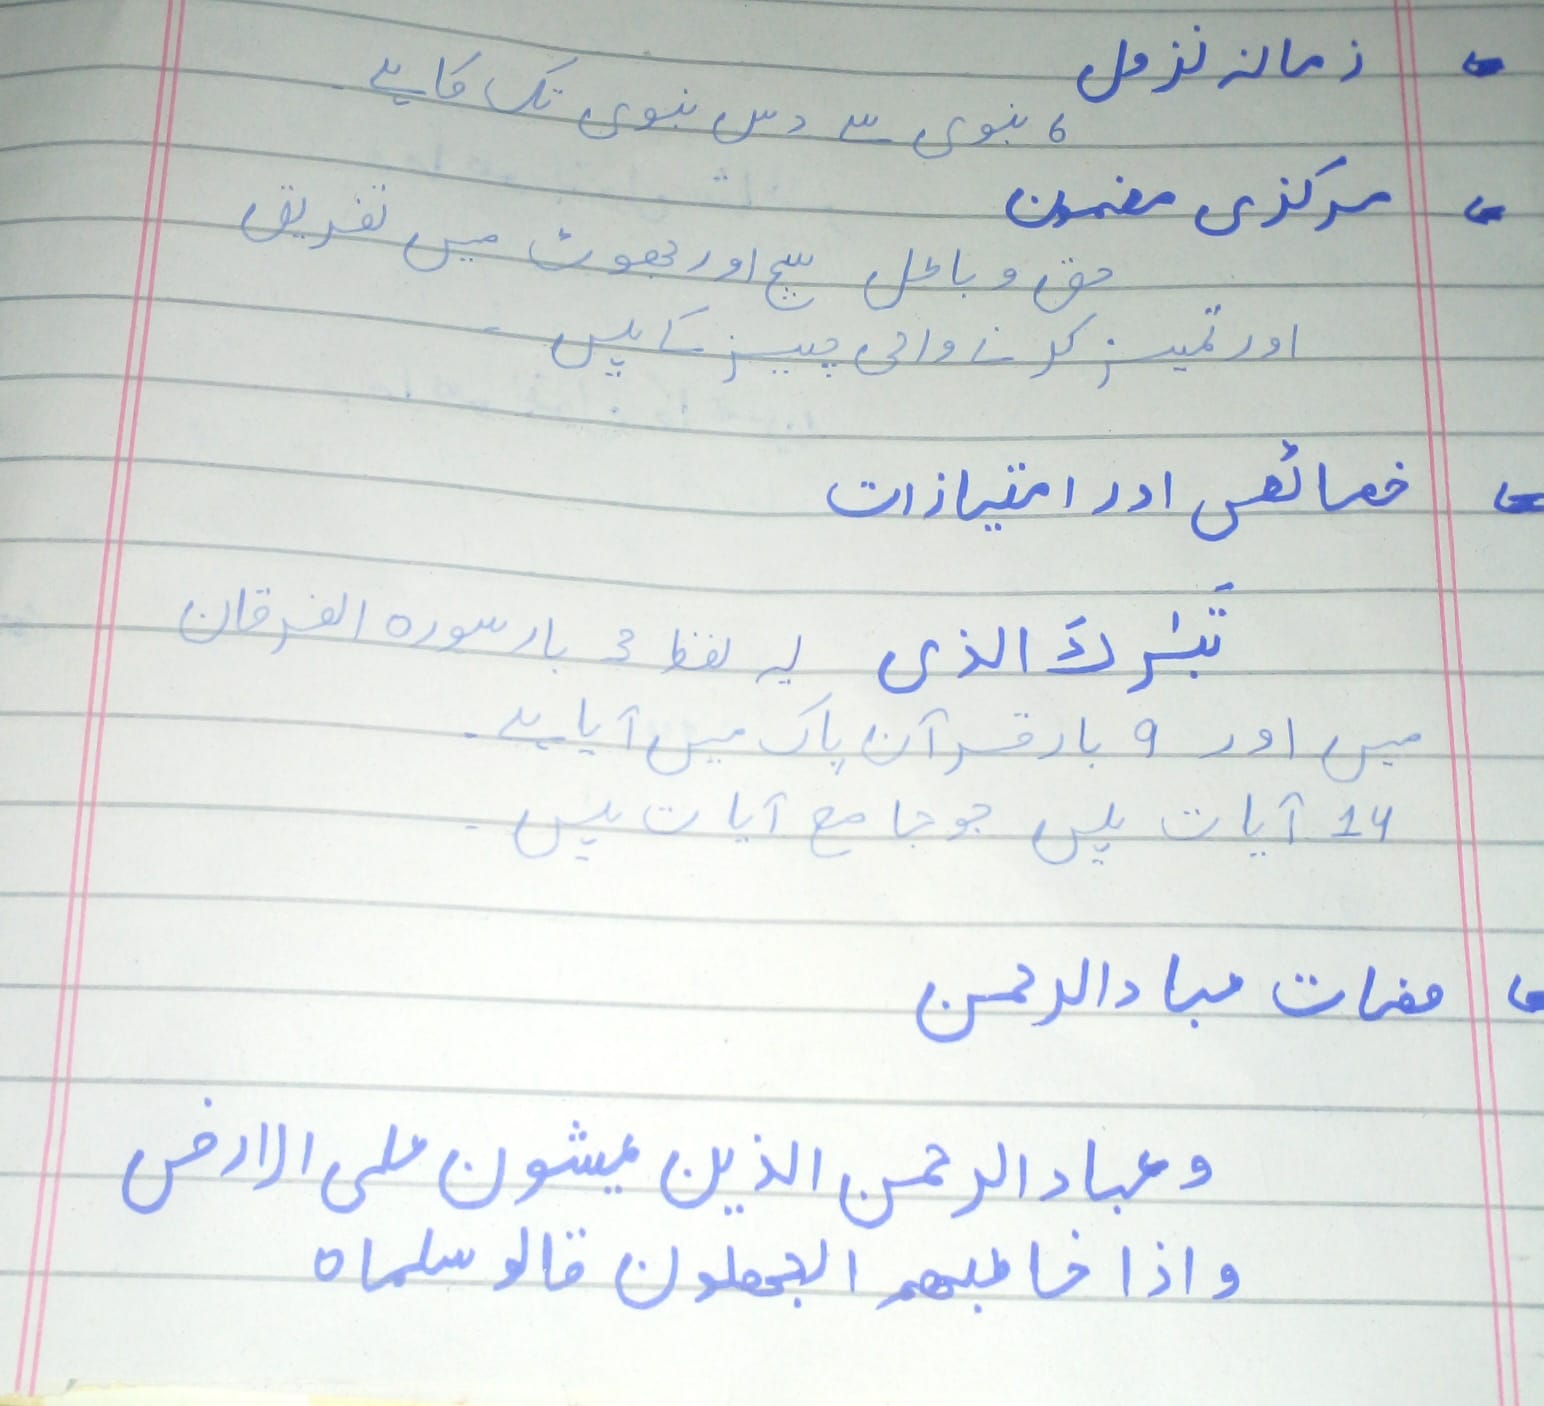 زمانہ نزول
6 نبوی سے دس نبوی تک کا ہے۔
مرکزی مضمون
حق و باطل سچ اور جھوٹ میں تفریق
اور تمیز کرنے والی چیز کے ہیں۔
خصائص اور امتیازات
تَبٰرَكَ الذی یہ لفظ 3 بار سورہ الفرقان
میں اور 9 بار قرآن پاک میں آیا ہے۔
14 آیات ہیں جو جامع آیات ہیں۔
صفات عباد الرحمن
وعباد الرحمن الذین یمشون علی الارض
واذا خاطبهم الجھلون قالو سلماہ